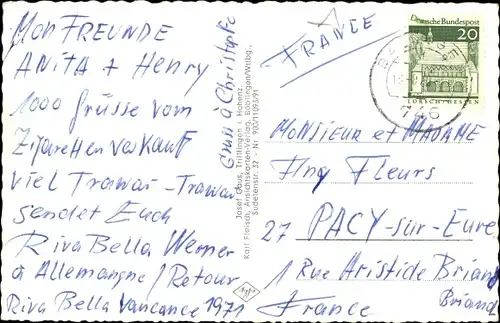 Mon FREUNDE
ANITA + Henry
1000 Grüsse vom
Zigaretten Verkauf
viel Trawai - Trawai
sendet Euch
Riva Bella Werner
a Allemangne / Retour
Riva Bella Vancance 1971
Gruss à Christophe
Josef Glaus, Trillfingen i. Hohenz.
Karl Frensch, Ansichtskarten-Verlag, Böblingen/Wttbg.
Sudetenstr. 32 - Nr. 900/11093/91
FRANCE
Deutsche Bundespost
20
LORSCH/HESSEN
MONSIEUR et MADAME
Fleurs
27 PACY-sur-Eure
1 Rue Aristide Briand
Briand
France